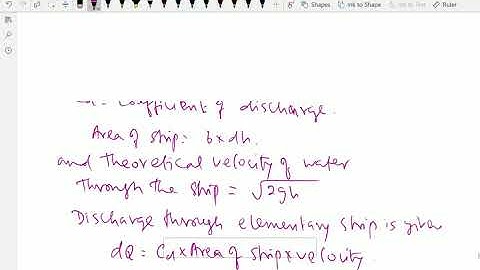 Shapes Ink to Shape Ink to Text Ruler
coefficient of discharge.
Area of strip: b×dh.
and theoretical velocity of water
through the strip = √2gh
Discharge through elementary strip is given
dQ = Cd × Area of strip × velocity.